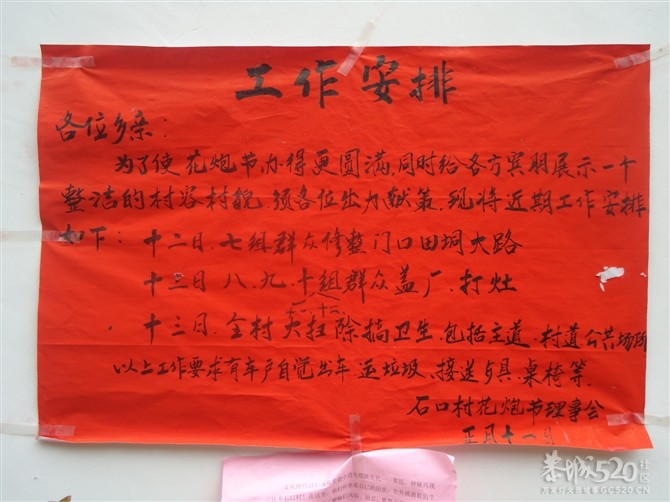 工作安排
各位乡亲：
为了使花炮节办得更圆满,同时给各方宾朋展示一个
整洁的村容村貌,须各位出力献策.现将近期工作安排
如下：十二日.七组群众修整门口田垌大路
十三日八.九.十组群众盖厂.打灶
十一.十二.
十三日.全村大扫除搞卫生.包括主道.村道公共场所
以上工作要求有车户自觉出车运垃圾、接送具、桌椅等.
石口村花炮节理事会
正月十一日
恭城520社区